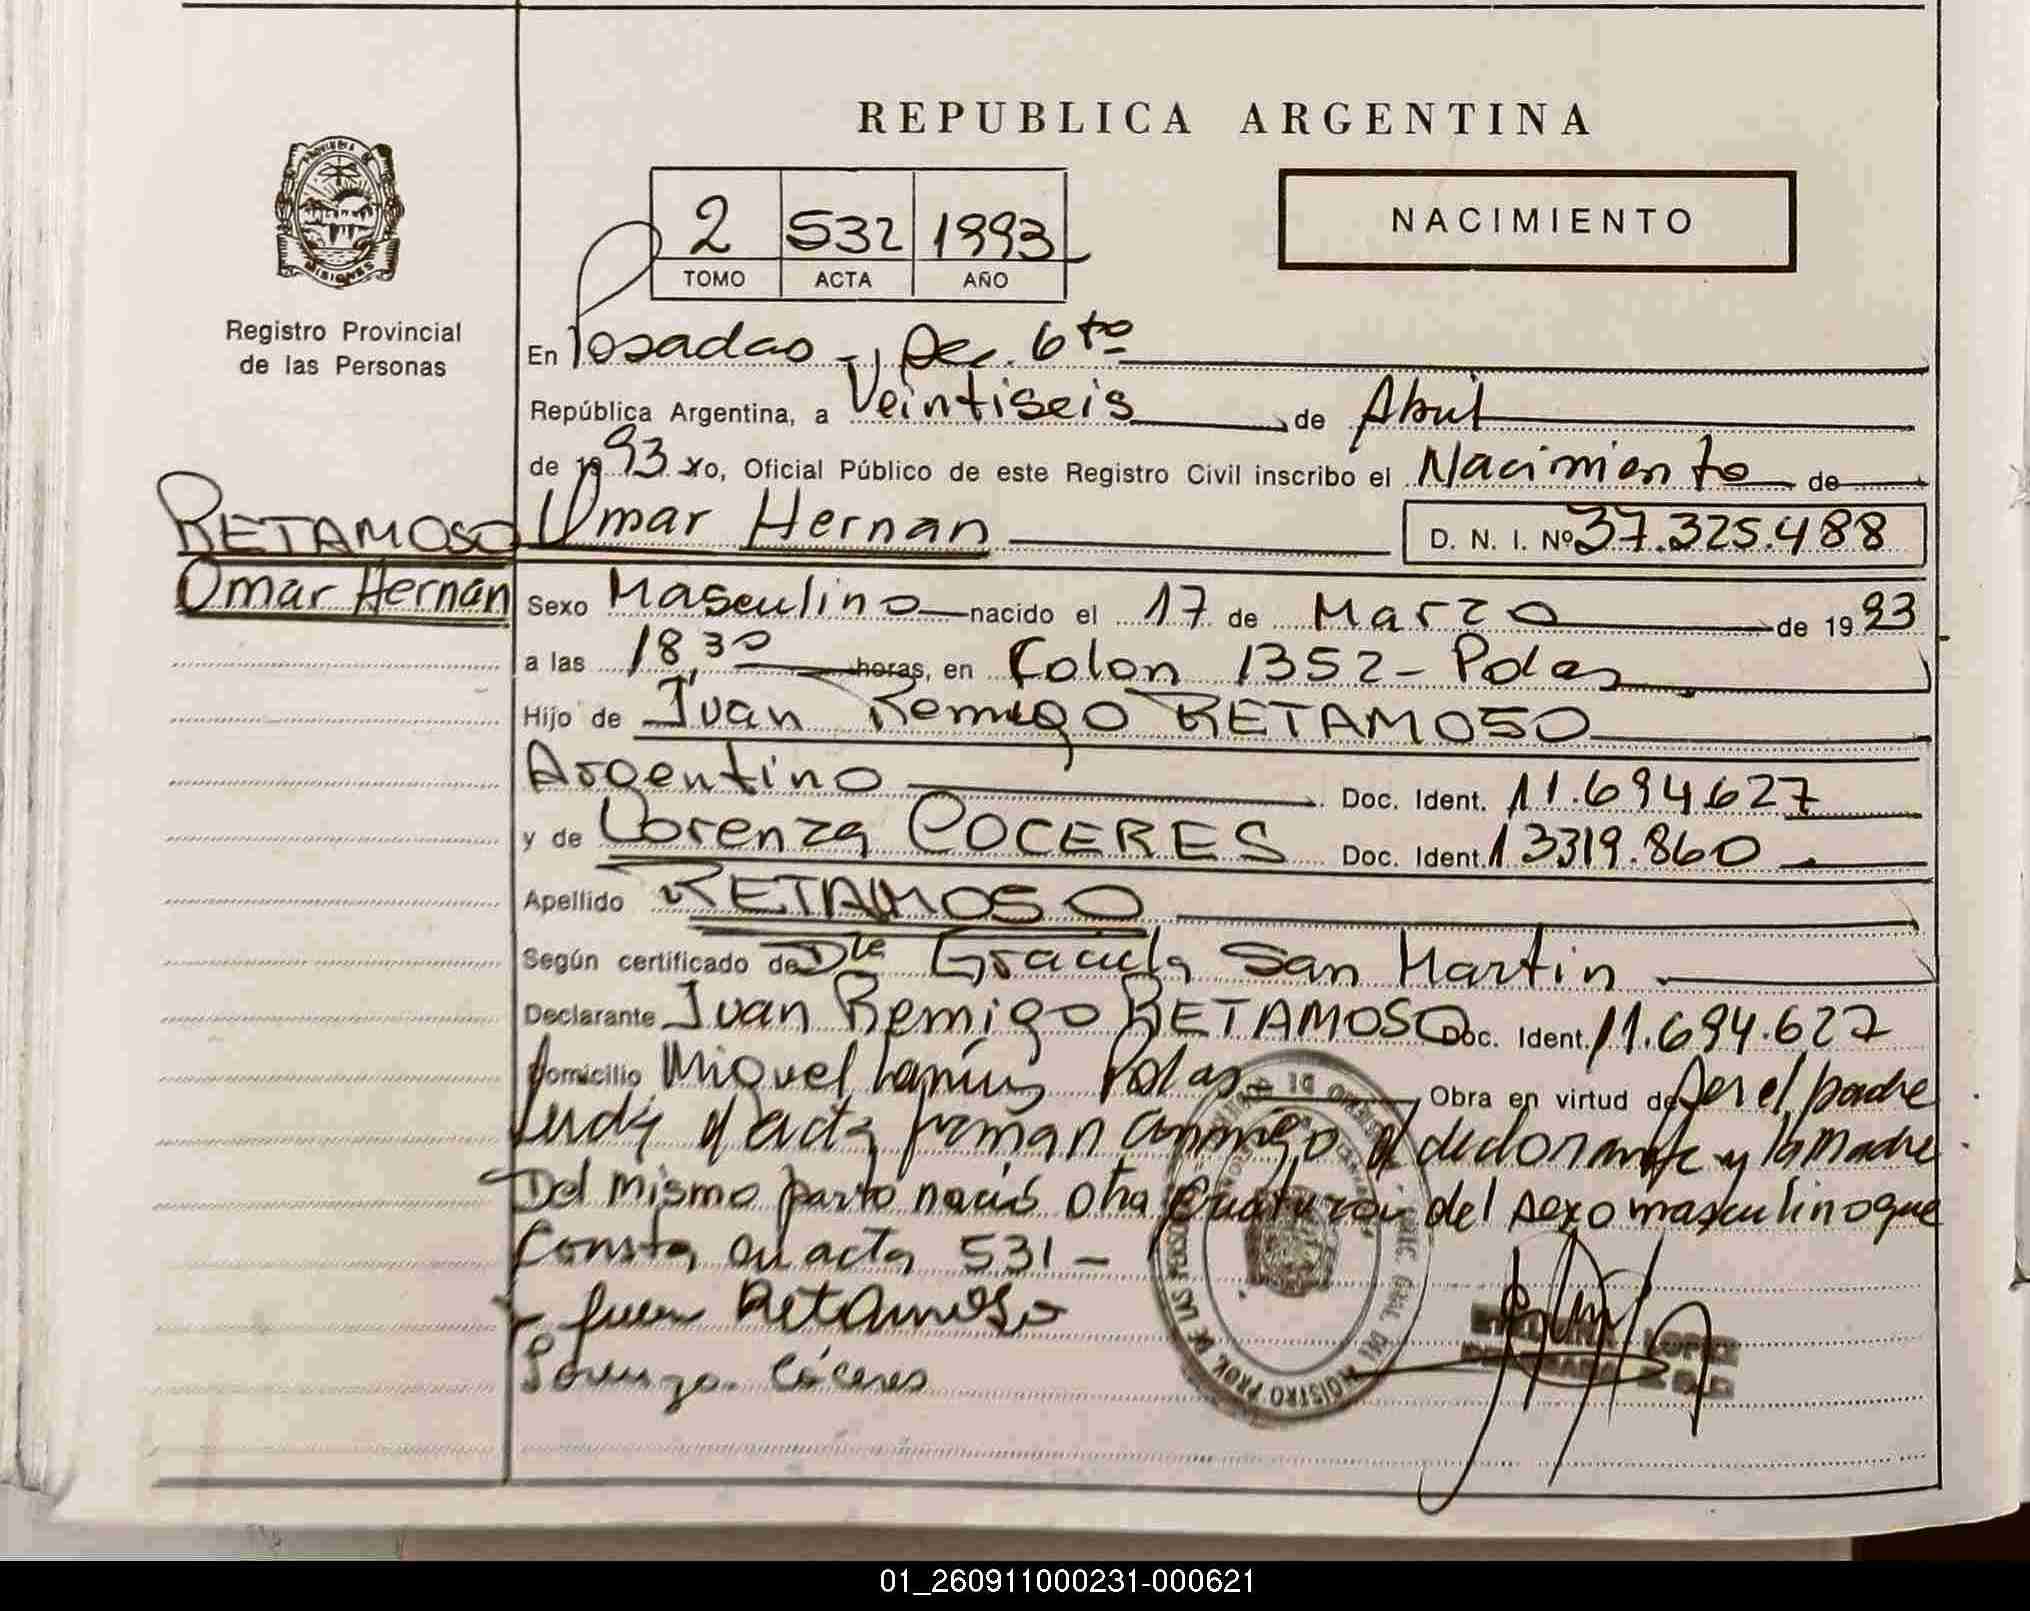 REPUBLICA ARGENTINA
PROVINCIA DE
MISIONES
Registro Provincial
de las Personas
NACIMIENTO
2 532 1993
TOMO ACTA AÑO
En Posadas -, Sec. 6ta
República Argentina, a Veintiseis de Abril
de 1993 yo, Oficial Público de este Registro Civil inscribo el Nacimiento de
RETAMOSO
Omar Hernan
Omar Hernan D. N. I. Nº 37.325.488
Sexo Masculino nacido el 17 de Marzo de 1993
a las 18,30 horas, en Colon 1352 - Pdas
Hijo de Juan Remigo RETAMOSO
Argentino Doc. Ident. 11.694.627
y de Lorenza COCERES Doc. Ident. 13319.860
Apellido RETAMOSO
Según certificado de Dra Graciela San Martin
Declarante Juan Remigo RETAMOSO Doc. Ident. 11.694.627
Domicilio Miguel Lanús Pdas Obra en virtud de ser el padre
Leida el acta firman conmigo el declarante y la madre
Del mismo parto nació otra criatura del sexo masculino que
Consta en acta 531 -
Juan Retamoso
Lorenza Cóceres
LOPEZ
01_260911000231-000621